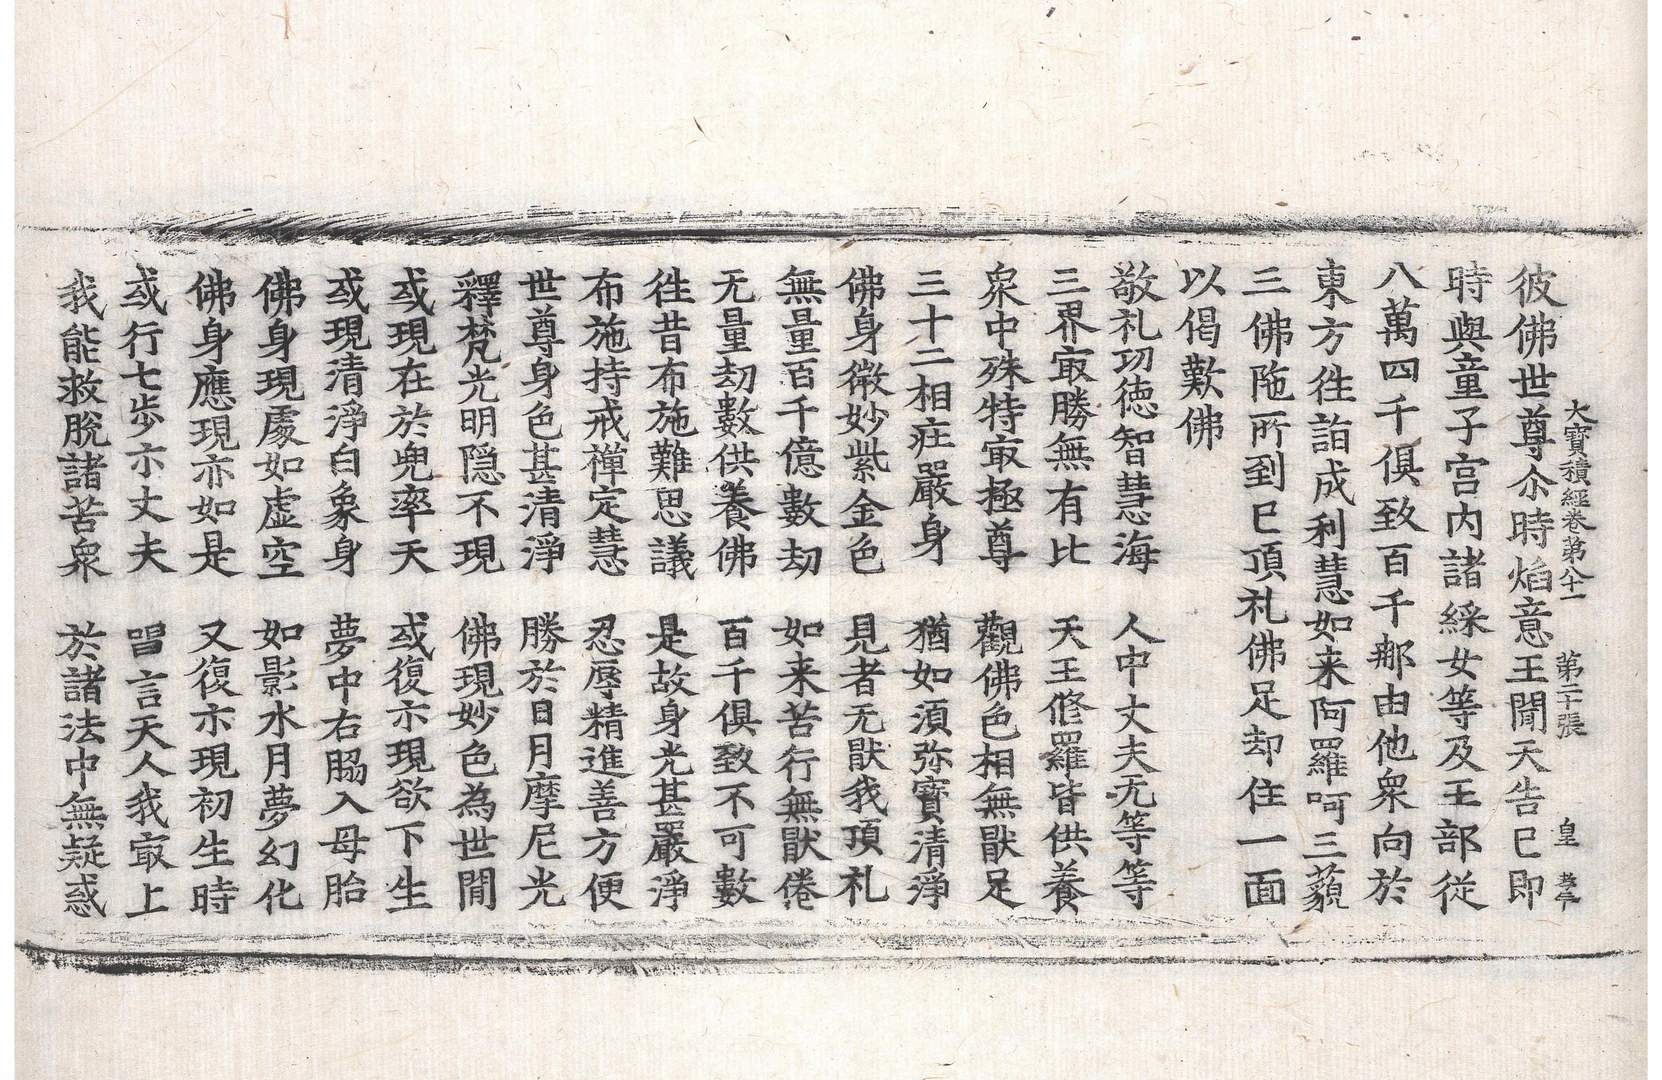 大寶積經卷第八十一 第二十張 皇
彼佛世尊尒時焰意王聞天告已即
時與童子宮內諸綵女等及王部從
八萬四千俱致百千那由他衆向於
東方徃詣成利慧如来阿羅呵三藐
三佛陁所到已頂礼佛足却住一面
以偈歎佛
敬礼功德智慧海 人中丈夫无等等
三界㝡勝無有比 天王脩羅皆供養
衆中殊特㝡極尊 觀佛色相無猒足
三十二相莊嚴身 猶如湏弥寶清淨
佛身微妙紫金色 見者无猒我頂礼
無量百千億數劫 如来苦行無猒倦
无量劫數供養佛 百千俱致不可數
徃昔布施難思議 是故身光甚嚴淨
布施持戒禪定慧 忍辱精進善方便
世尊身色甚清淨 勝於日月摩尼光
釋梵光明隠不現 佛現妙色為世間
或現在於兜率天 或復亦現欲下生
或現清淨白象身 夢中右脇入母胎
佛身現處如虛空 如影水月夢幻化
佛身應現亦如是 又復亦現初生時
或行七步亦丈夫 唱言天人我㝡上
我能救脫諸苦衆 於諸法中無疑惑